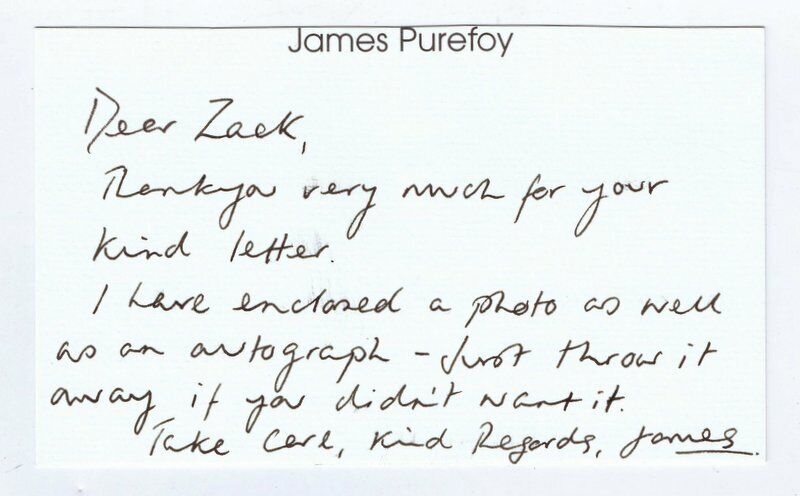 James Purefoy
Dear Zack,
Thankyou very much for your
kind letter.
I have enclosed a photo as well
as an autograph - Just throw it
away if you didn't want it.
Take care, Kind Regards, James.